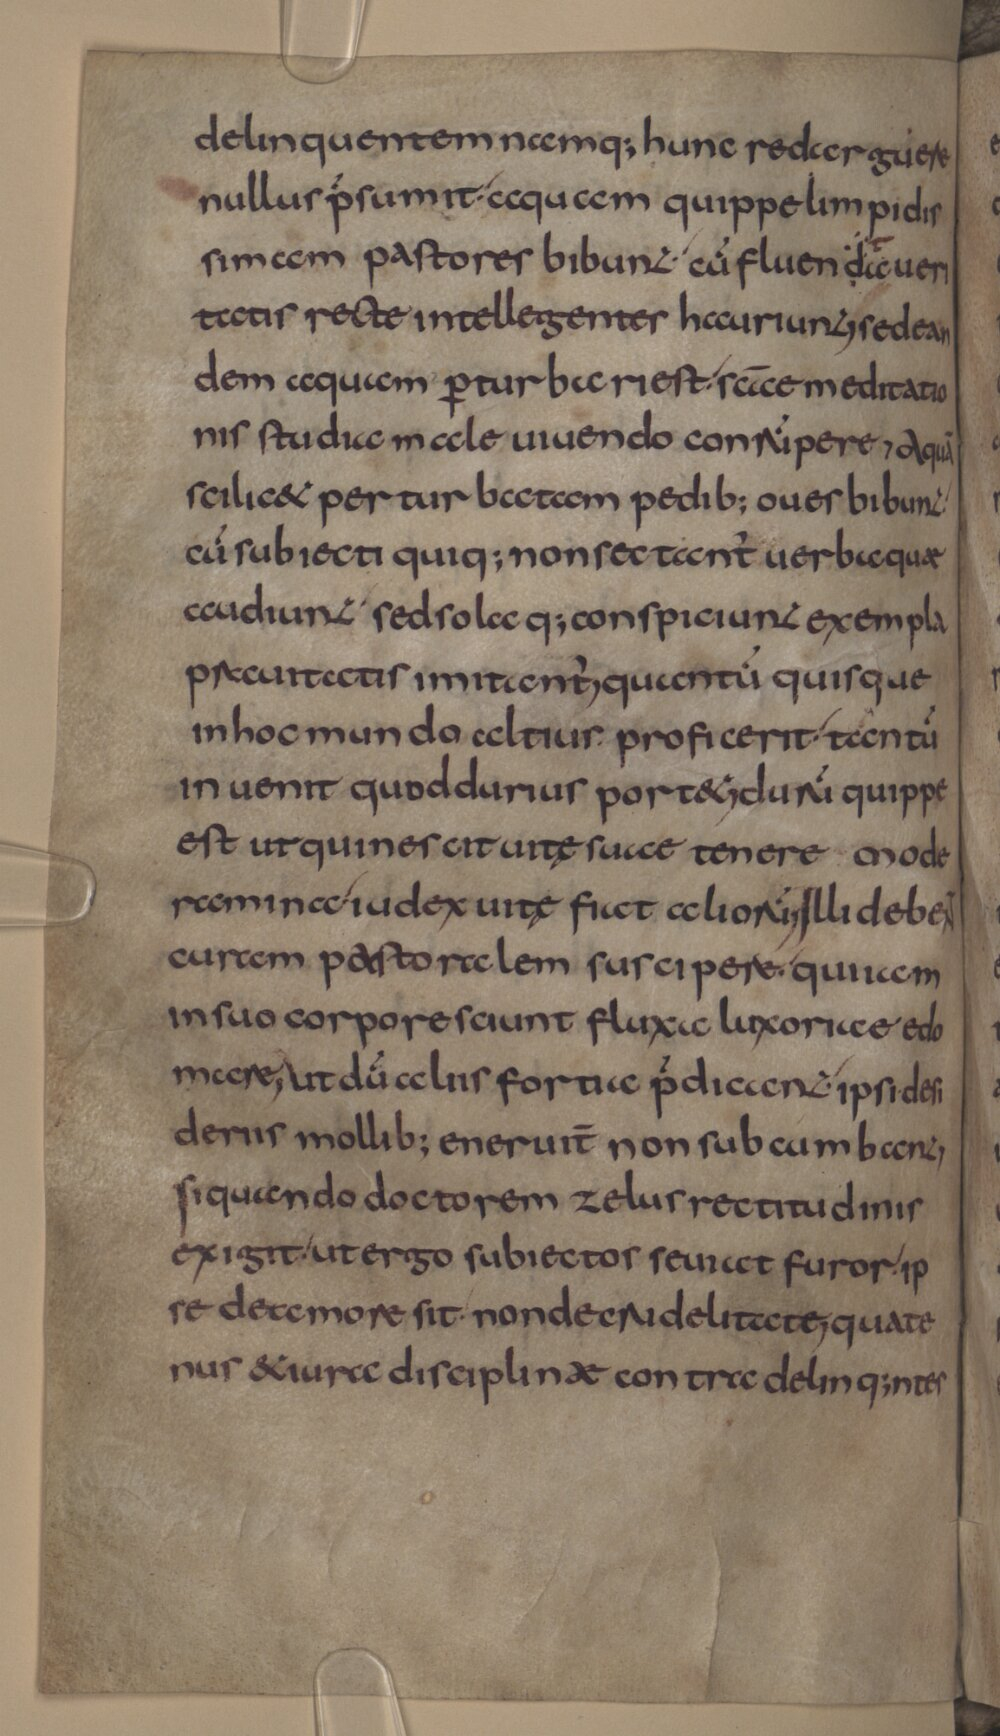 delinquentem namq; hunc redarguere
nullus p̄sumit· aquam quippe limpidis
simam pastores bibunt· cū fluenta ueri
tatis recte intellegentes hauriunt; sed ean
dem aquam ꝑturbari est· scāe meditatio
nis studia male uiuendo conrūpere; aquā
scilic& perturbatam pedib; oues bibunt·
cū subiecti quiq; non sectant̄ uerba quæ
audiunt sed sola q; conspiciunt exempla
prauitatis imitant̄; quantū quisque
in hoc mundo altius proficerit· tantū
inuenit quod durius port&; durū quippe
est ut qui nescit uitę suae tenere mode
ramina· iudex uitę fiat aliorū; Illi debent
curam pastoralem suscipere· qui iam
in suo corpore sciunt fluxa luxoriae edo
mare; ut dū aliis fortia p̄dicant· ipsi desi
deriis mollib; eneruit̄ non subcumbant;
si quando doctorem zelus rectitudinis
exigit· ut ergo subiectos seuiat furor· ip
se de amore sit· non de crudelitate; quate
nus & iura disciplinæ contra delinq;ntes